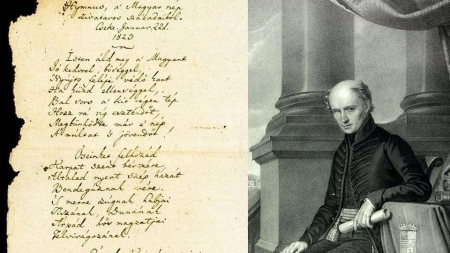 Hymnus, a Magyar nep
zivataros századaiból.
Cseke Januar. 22d.
1823
Isten áld meg a Magyart
Jó kedvvel, bőséggel,
Nyújts feléje védő kart
Ha küzd ellenséggel,
Bal sors a kit régen tép
Hozz rá víg esztendőt,
Megbünhödte már e nép
A multat s jövendőt!
Őseinket felhozád
Kárpát szent bérczére
Általad nyert szép hazát
Bendegúznak vére.
S merre zúgnak habjai
Tiszának, Dunának
Árpád hős magzatjai
Felvirágozának.